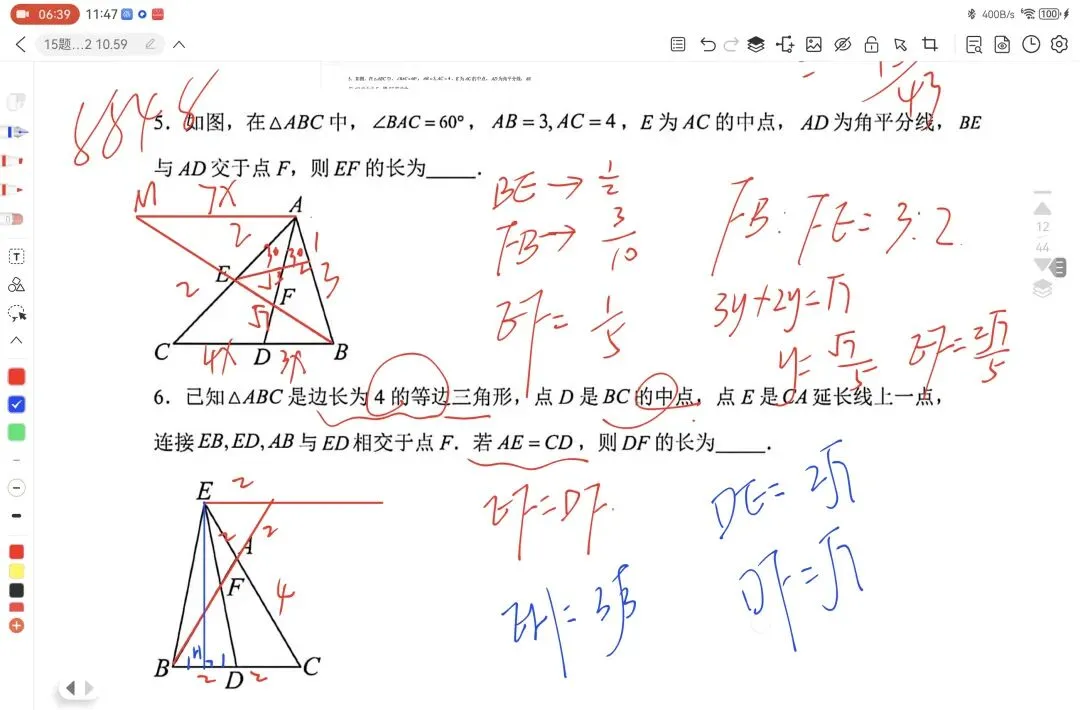 06:39 11:47 400B/s 100
15题...2 10.59
6848
43
5. 如图，在△ABC 中，∠BAC＝60°，AB＝3, AC＝4，E 为 AC 的中点，AD 为角平分线，BE
与 AD 交于点 F，则 EF 的长为_____.
M 7x A
2 30 30 1
E √3 2 3
2 F
√7
C 4x D 3x B
BE → 1/2
FB → 3/10
EF = 1/5
FB: FE = 3:2
3y+2y=√7
y=√7/5 EF=2√7/5
12
44
6. 已知△ABC 是边长为 4 的等边三角形，点 D 是 BC 的中点，点 E 是 CA 延长线上一点，
连接 EB, ED, AB 与 ED 相交于点 F．若 AE＝CD，则 DF 的长为_____.
E 2
2 A 2
F 4
B 1 H 1 D C
2 2
EF=DF
EH=3√3
DE=2√7
DF=√7